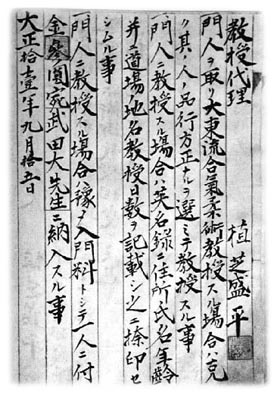 教授代理 植芝盛平
一門人ヲ取リ大東流合氣柔術教授スル場合ハ克
ク其ノ人ノ品行方正ナルヲ選ミテ教授スル事
一門人ニ教授スル場合ハ英名録ニ住所氏名年齢
并ニ道場地名教授日数ヲ記載シ之ニ捺印セ
シムル事
一門人ニ教授スル場合ハ豫メ入門料トシテ一人ニ付
金参圓宛武田大先生ニ納入スル事
大正拾壹年九月拾五日